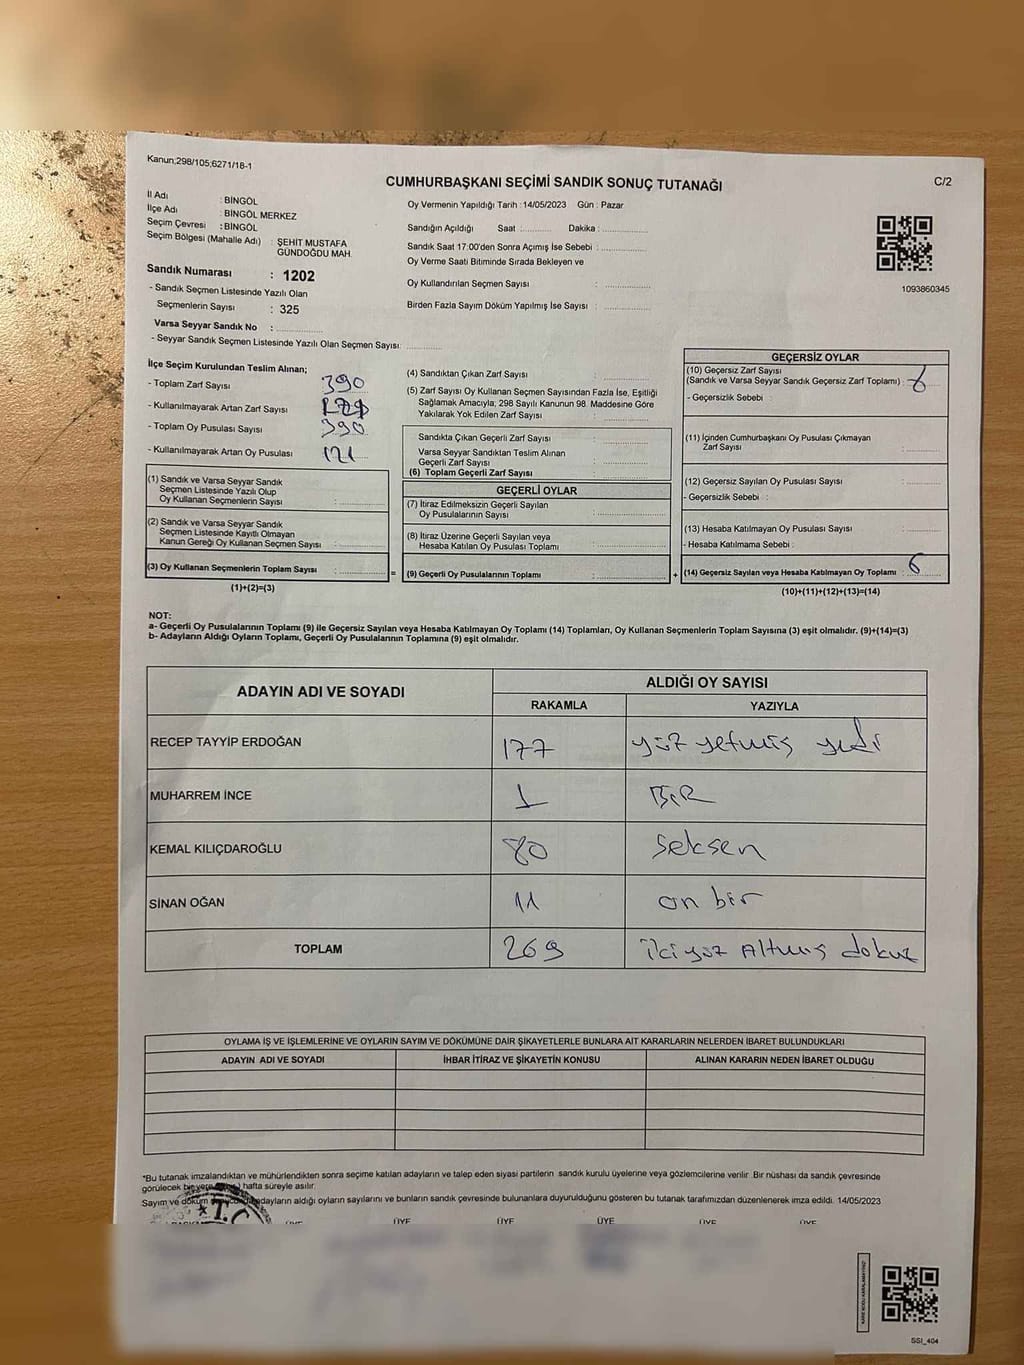 Kanun;298/105;6271/18-1
CUMHURBAŞKANI SEÇİMİ SANDIK SONUÇ TUTANAĞI
C/2
İl Adı : BİNGÖL
İlçe Adı : BİNGÖL MERKEZ
Seçim Çevresi : BİNGÖL
Seçim Bölgesi (Mahalle Adı) : ŞEHİT MUSTAFA
GÜNDOĞDU MAH.
Sandık Numarası : 1202
- Sandık Seçmen Listesinde Yazılı Olan
Seçmenlerin Sayısı : 325
Varsa Seyyar Sandık No :
- Seyyar Sandık Seçmen Listesinde Yazılı Olan Seçmen Sayısı:
Oy Vermenin Yapıldığı Tarih :14/05/2023 Gün : Pazar
Sandığın Açıldığı Saat : Dakika :
Sandık Saat 17:00'den Sonra Açımış İse Sebebi :
Oy Verme Saati Bitiminde Sırada Bekleyen ve
Oy Kullandırılan Seçmen Sayısı :
Birden Fazla Sayım Döküm Yapılmış İse Sayısı :
1093860345
İlçe Seçim Kurulundan Teslim Alınan;
- Toplam Zarf Sayısı 390
- Kullanılmayarak Artan Zarf Sayısı
- Toplam Oy Pusulası Sayısı 390
- Kullanılmayarak Artan Oy Pusulası 121
(1) Sandık ve Varsa Seyyar Sandık
Seçmen Listesinde Yazılı Olup
Oy Kullanan Seçmenlerin Sayısı :
(2) Sandık ve Varsa Seyyar Sandık
Seçmen Listesinde Kayıtlı Olmayan
Kanun Gereği Oy Kullanan Seçmen Sayısı :
(3) Oy Kullanan Seçmenlerin Toplam Sayısı :
(1)+(2)=(3)
=
(4) Sandıktan Çıkan Zarf Sayısı :
(5) Zarf Sayısı Oy Kullanan Seçmen Sayısından Fazla İse, Eşitliği
Sağlamak Amacıyla, 298 Sayılı Kanunun 98. Maddesine Göre
Yakılarak Yok Edilen Zarf Sayısı :
Sandıkta Çıkan Geçerli Zarf Sayısı :
Varsa Seyyar Sandıktan Teslim Alınan
Geçerli Zarf Sayısı :
(6) Toplam Geçerli Zarf Sayısı
GEÇERLİ OYLAR
(7) İtiraz Edilmeksizin Geçerli Sayılan
Oy Pusulalarının Sayısı :
(8) İtiraz Üzerine Geçerli Sayılan veya
Hesaba Katılan Oy Pusulası Toplamı :
(9) Geçerli Oy Pusulalarının Toplamı :
+
GEÇERSİZ OYLAR
(10) Geçersiz Zarf Sayısı
(Sandık ve Varsa Seyyar Sandık Geçersiz Zarf Toplamı) : 6
- Geçersizlik Sebebi :
(11) İçinden Cumhurbaşkanı Oy Pusulası Çıkmayan
Zarf Sayısı :
(12) Geçersiz Sayılan Oy Pusulası Sayısı :
- Geçersizlik Sebebi :
(13) Hesaba Katılmayan Oy Pusulası Sayısı :
- Hesaba Katılmama Sebebi :
(14) Geçersiz Sayılan veya Hesaba Katılmayan Oy Toplamı : 6
(10)+(11)+(12)+(13)=(14)
NOT:
a- Geçerli Oy Pusulalarının Toplamı (9) ile Geçersiz Sayılan veya Hesaba Katılmayan Oy Toplamı (14) Toplamları, Oy Kullanan Seçmenlerin Toplam Sayısına (3) eşit olmalıdır. (9)+(14)=(3)
b- Adayların Aldığı Oyların Toplamı, Geçerli Oy Pusulalarının Toplamına (9) eşit olmalıdır.
ADAYIN ADI VE SOYADI ALDIĞI OY SAYISI
RAKAMLA YAZIYLA
RECEP TAYYİP ERDOĞAN 177 yüz yetmiş yedi
MUHARREM İNCE 1 BİR
KEMAL KILIÇDAROĞLU 80 Seksen
SİNAN OĞAN 11 on bir
TOPLAM 269 ikiyüz Altmış dokuz
OYLAMA İŞ VE İŞLEMLERİNE VE OYLARIN SAYIM VE DÖKÜMÜNE DAİR ŞİKAYETLERLE BUNLARA AİT KARARLARIN NELERDEN İBARET BULUNDUKLARI
ADAYIN ADI VE SOYADI İHBAR İTİRAZ VE ŞİKAYETİN KONUSU ALINAN KARARIN NEDEN İBARET OLDUĞU
*Bu tutanak imzalandıktan ve mühürlendikten sonra seçime katılan adayların ve talep eden siyasi partilerin sandık kurulu üyelerine veya gözlemcilerine verilir. Bir nüshası da sandık çevresinde
görülecek bir yere hafta süreyle asılır.
Sayım ve döküm adayların aldığı oyların sayılarını ve bunların sandık çevresinde bulunanlara duyurulduğunu gösteren bu tutanak tarafımızdan düzenlenerek imza edildi. 14/05/2023
T.C
ÜYE ÜYE ÜYE ÜYE ÜYE ÜYE
SSI_404